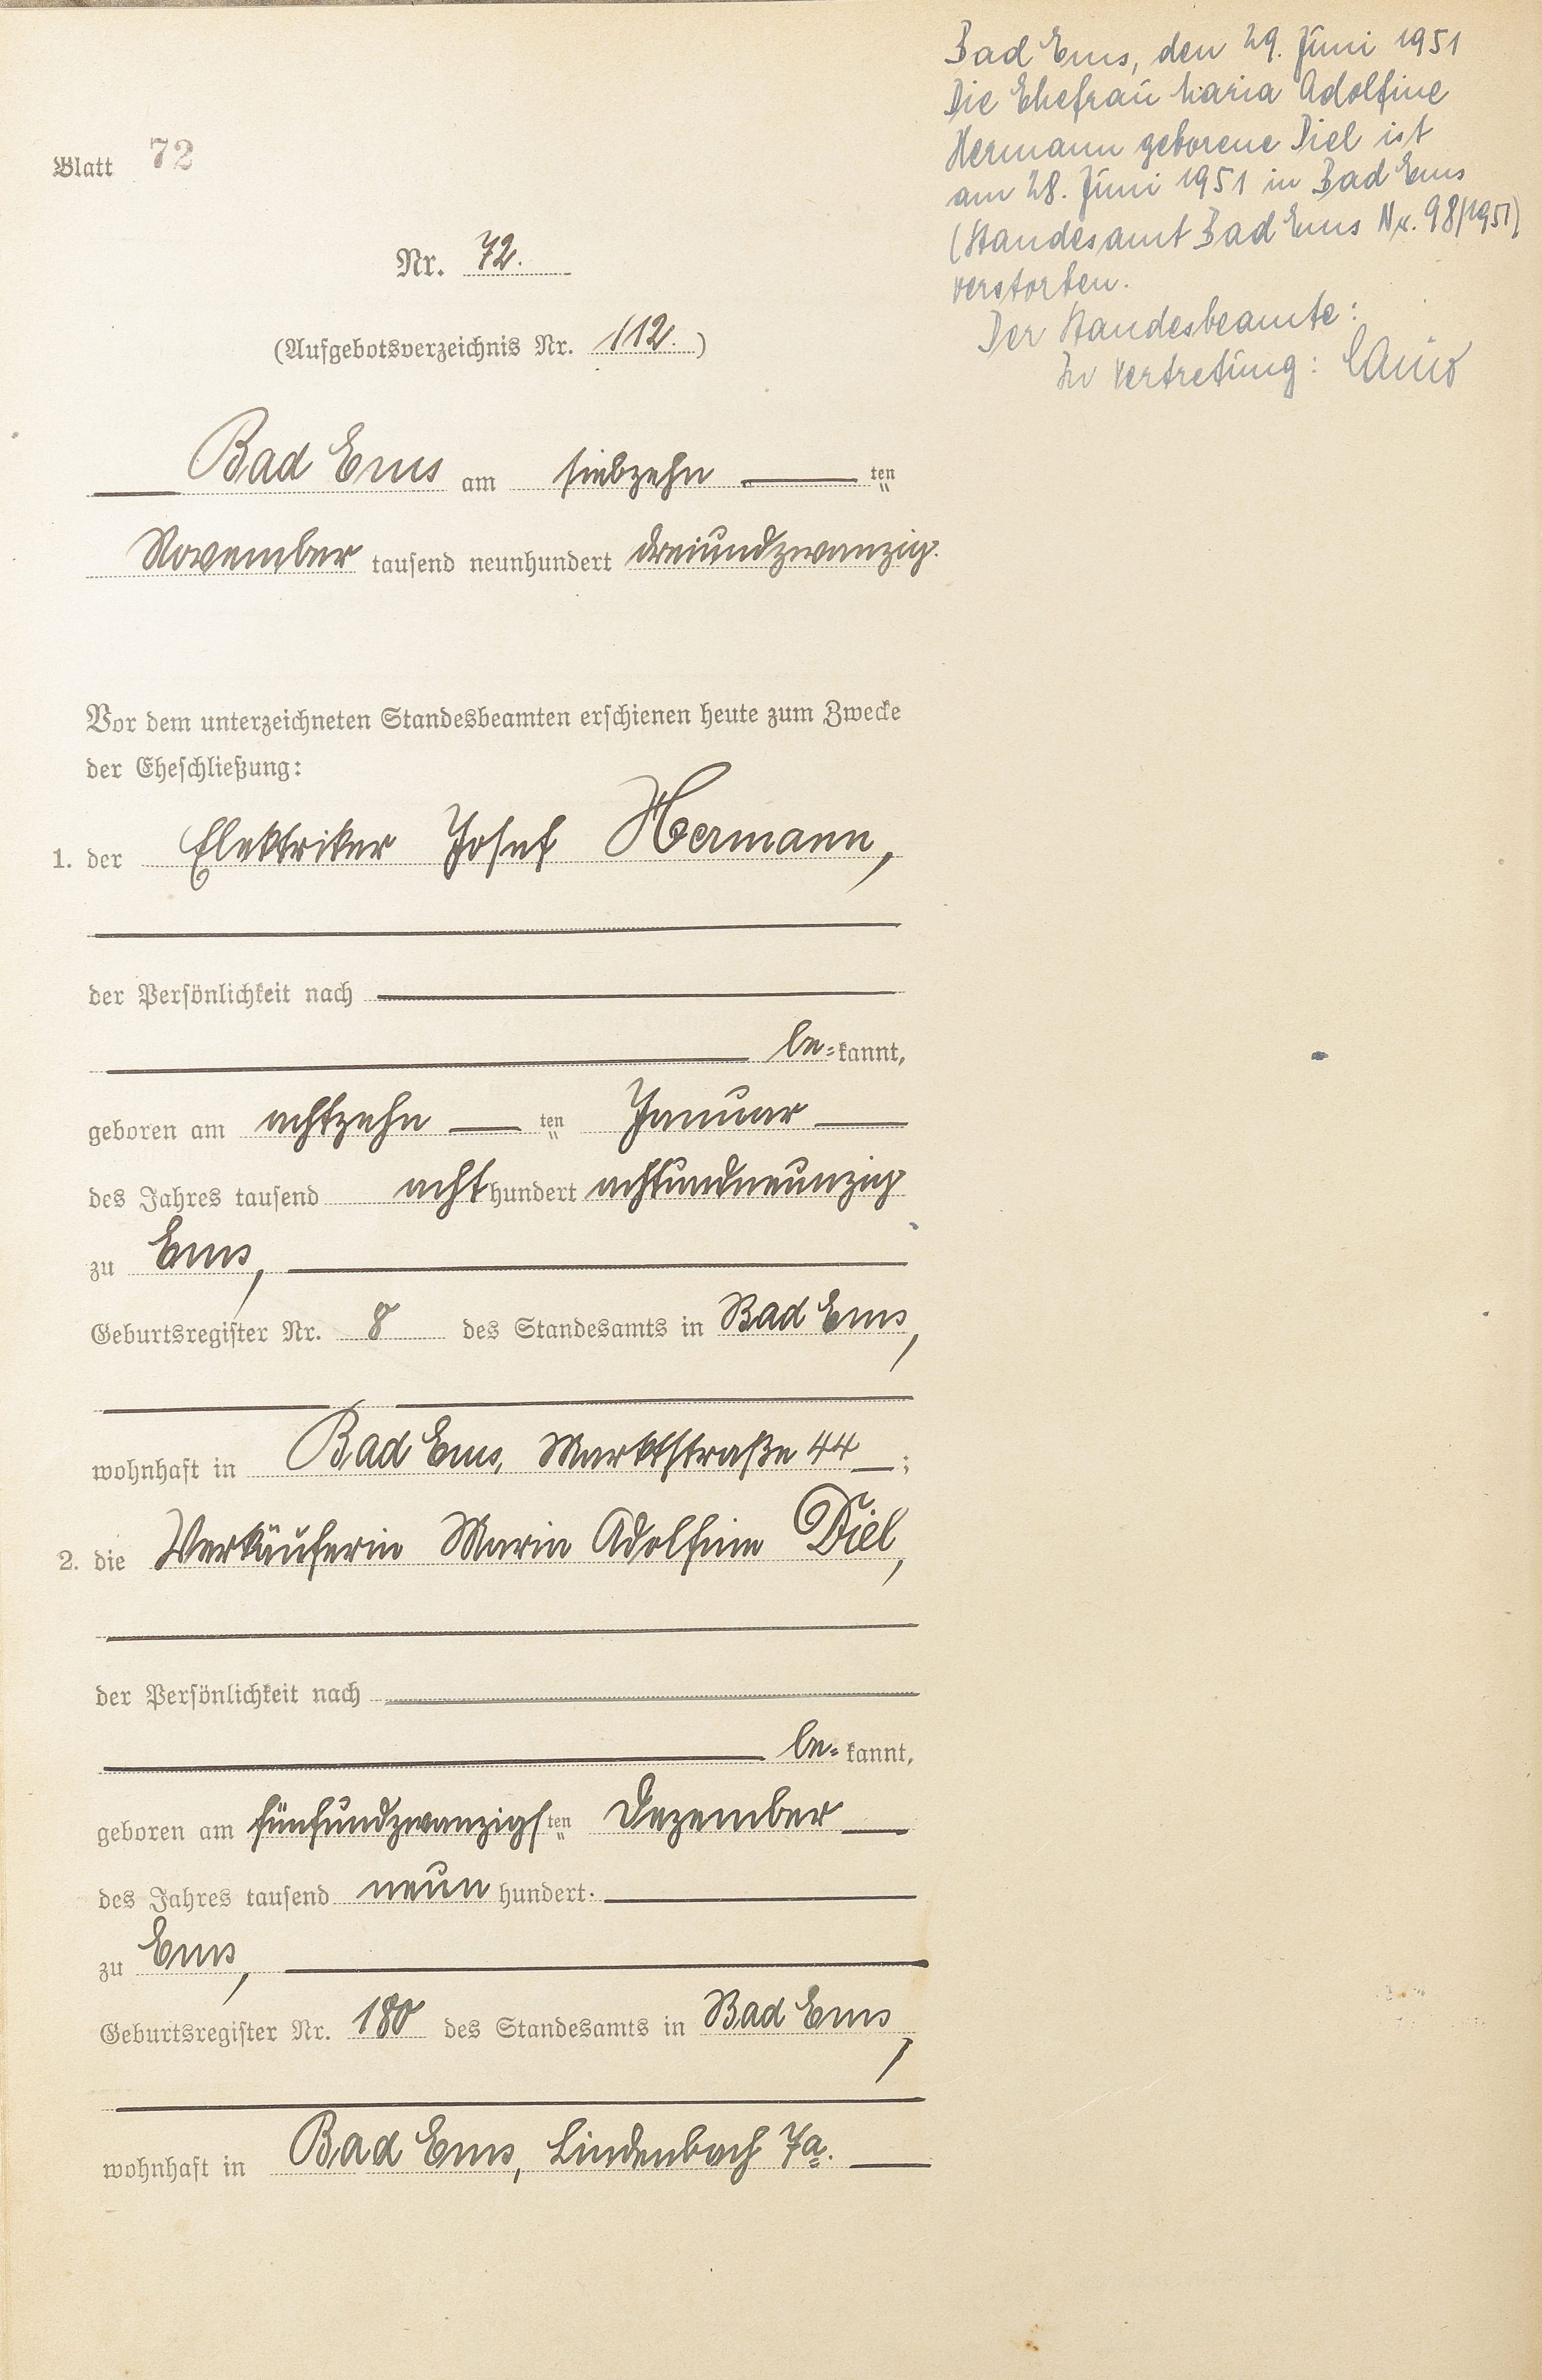 Bad Ems, den 29. Juni 1951
Die Ehefrau Maria Adolfine
Hermann geborene Diel ist
am 28. Juni 1951 in Bad Ems
(Standesamt Bad Ems Nr. 98/1951)
verstorben.
Der Standesbeamte:
In Vertretung:
Blatt 72
Nr. 72.
(Aufgebotsverzeichnis Nr. 112.)
Bad Ems am siebzehn ten
November tausend neunhundert dreiundzwanzig.
Vor dem unterzeichneten Standesbeamten erschienen heute zum Zwecke
der Eheschließung:
1. der Elektriker Josef Hermann,
der Persönlichkeit nach
be=kannt,
geboren am achtzehn ten Januar
des Jahres tausend acht hundert achtundneunzig
zu Ems,
Geburtsregister Nr. 8 des Standesamts in Bad Ems,
wohnhaft in Bad Ems, Marktstraße 44 ;
2. die Verkäuferin Maria Adolfine Diel,
der Persönlichkeit nach
be=kannt,
geboren am fünfundzwanzigsten Dezember
des Jahres tausend neun hundert.
zu Ems,
Geburtsregister Nr. 180 des Standesamts in Bad Ems,
wohnhaft in Bad Ems, Lindenbach 7a.